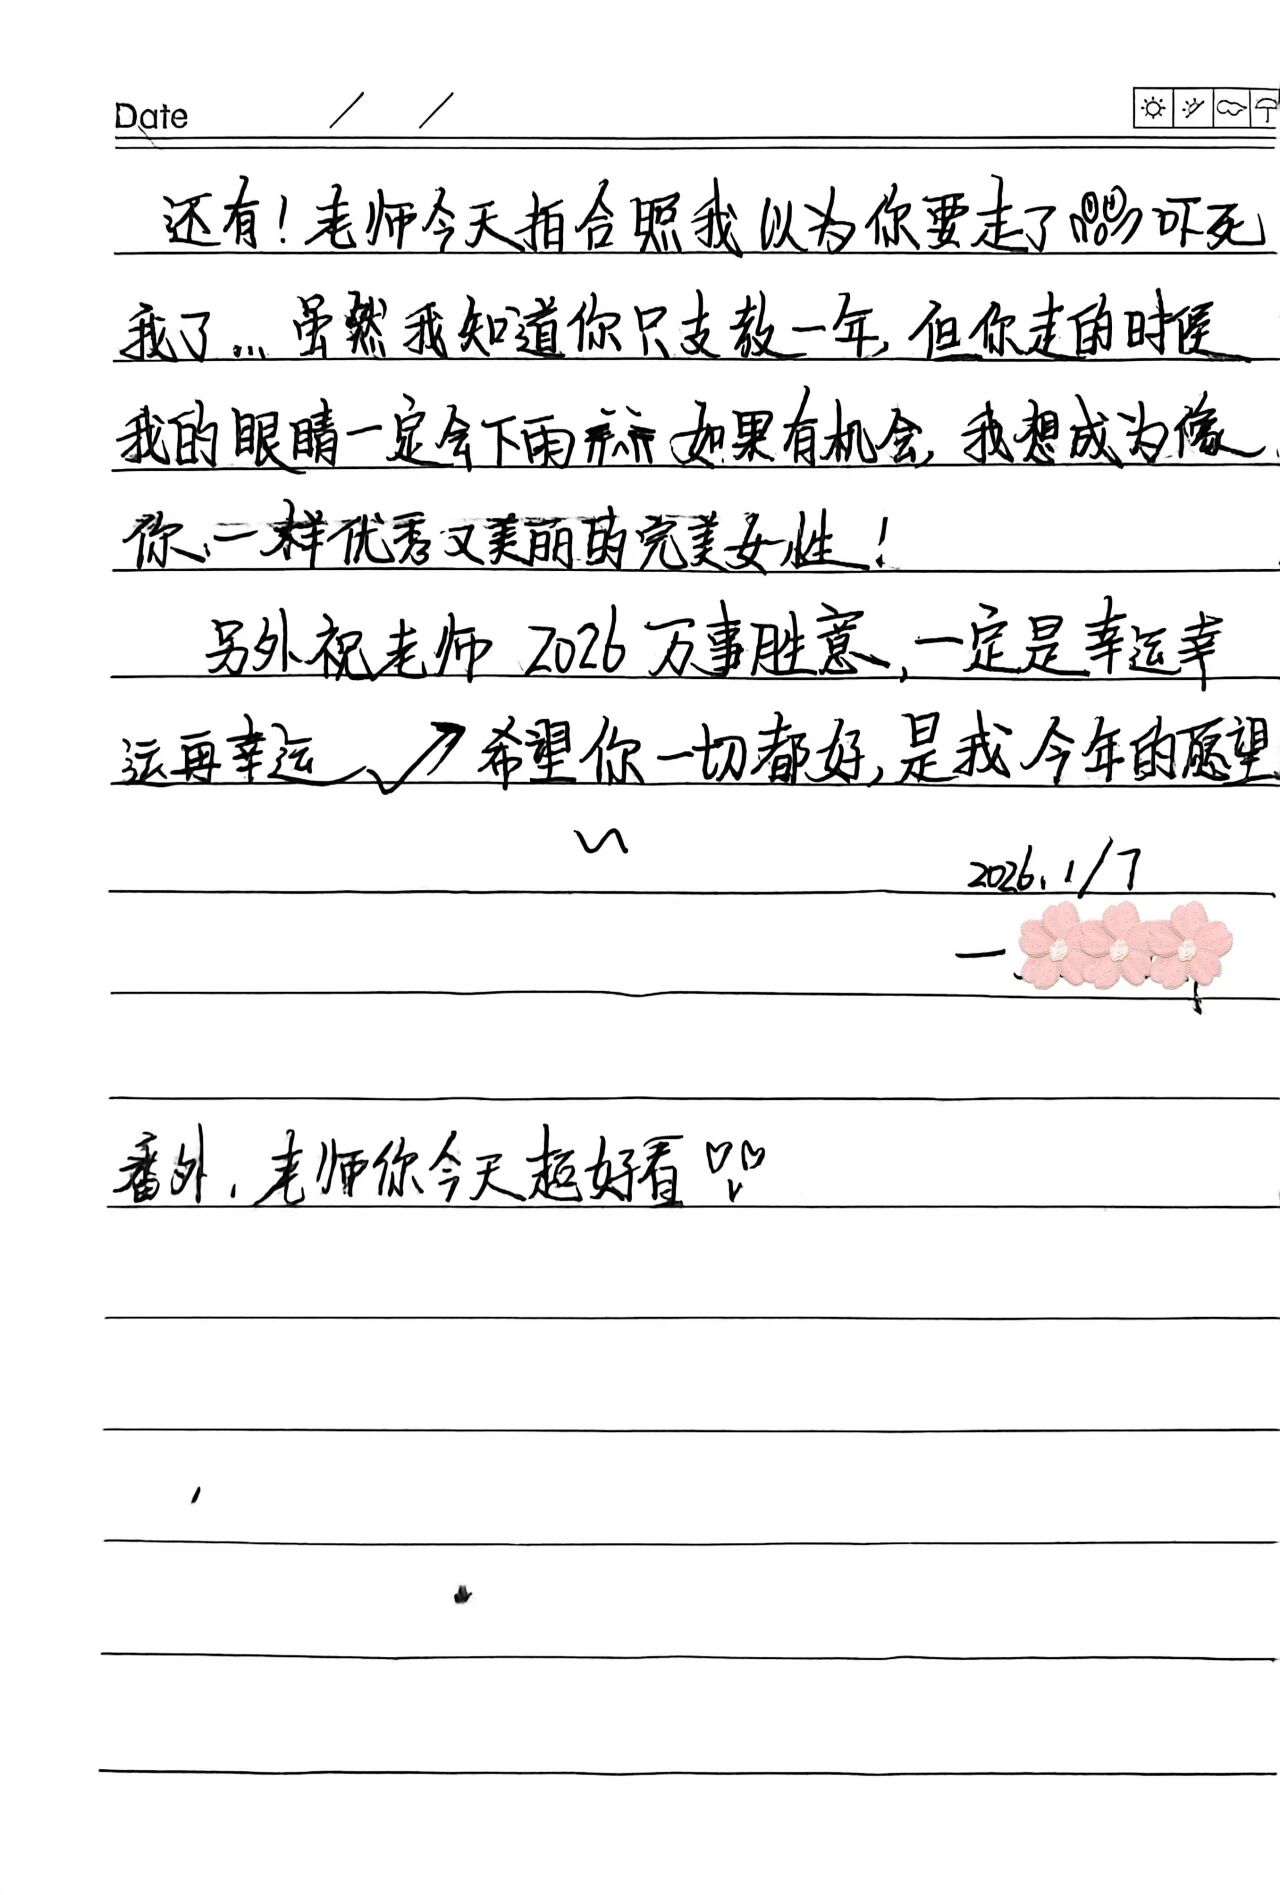 Date / /
还有！老师今天拍合照我以为你要走了吓死
我了...虽然我知道你只支教一年,但你走的时候
我的眼睛一定会下雨 如果有机会,我想成为像
你一样优秀又美丽的完美女性！
另外祝老师2026万事胜意,一定是幸运幸
运再幸运 希望你一切都好,是我今年的愿望
2026.1/7
一
番外,老师你今天超好看